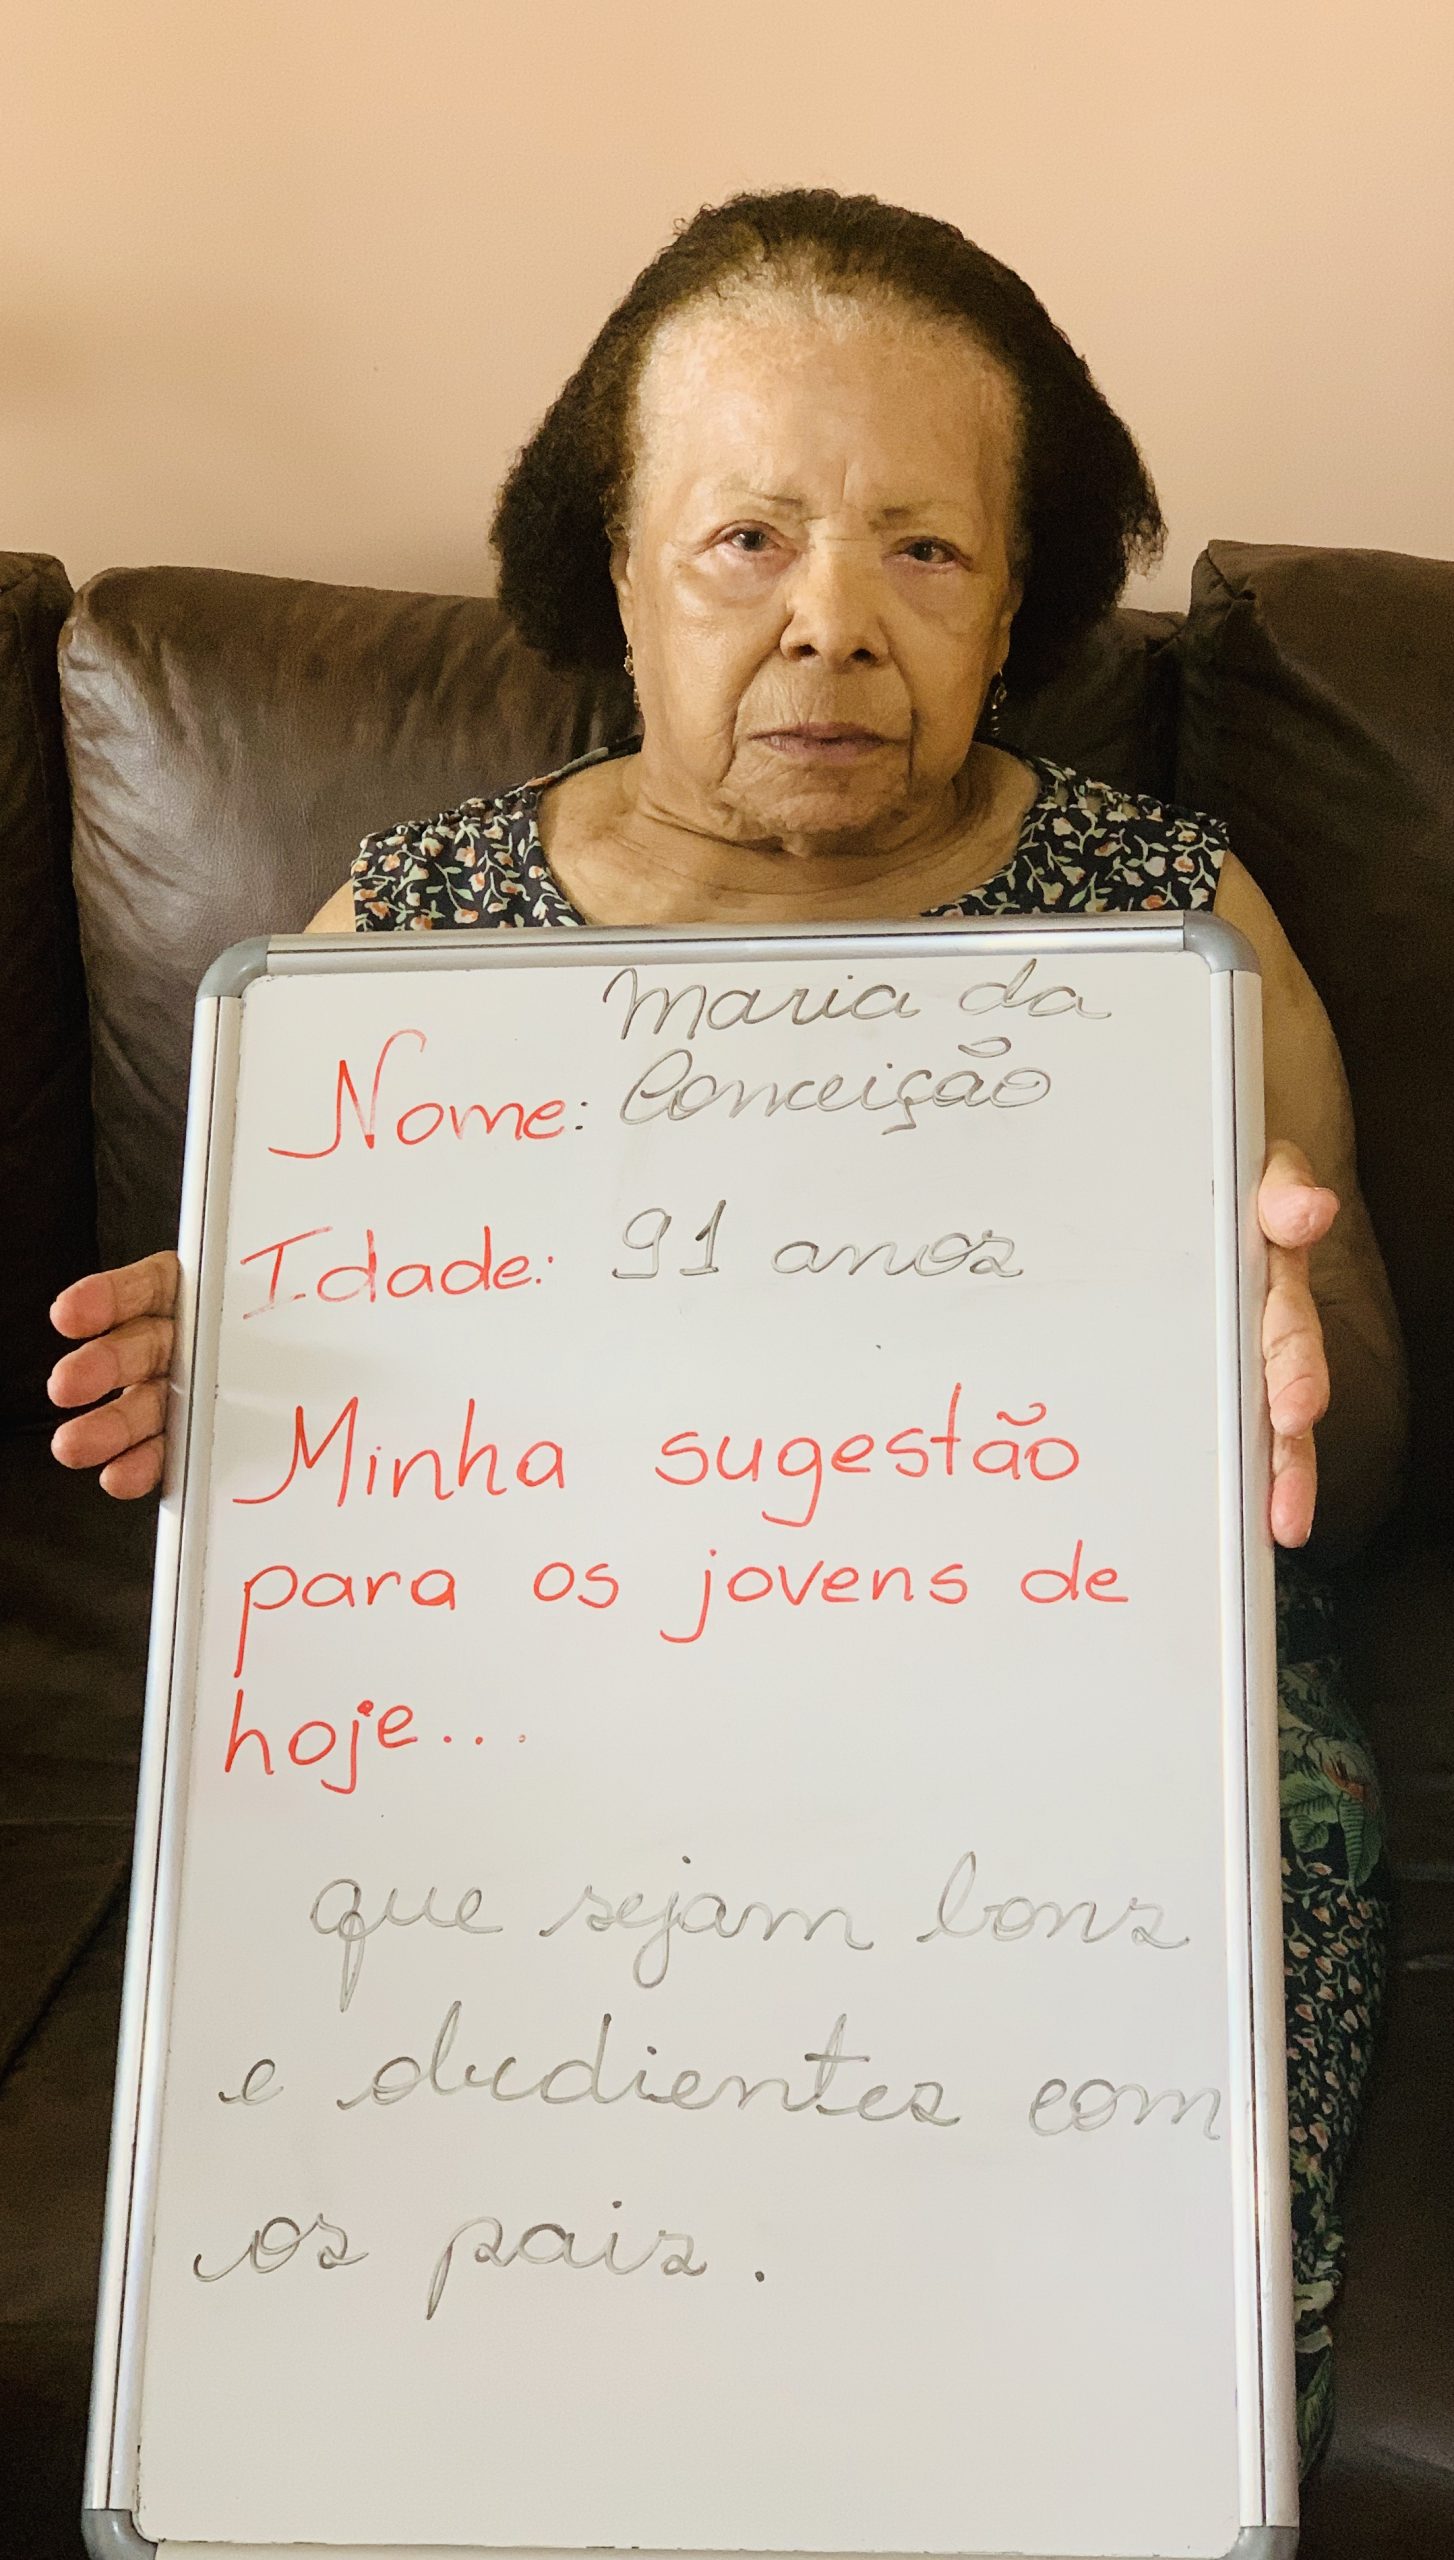 Maria da
Nome: Conceição
Idade: 91 anos
Minha sugestão
para os jovens de
hoje...
que sejam bons
e obedientes com
os pais.